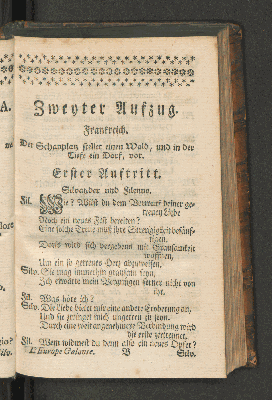 Zweyter Aufzug.
Frankreich.
Der Schauplatz stellet einen Wald, und in der
Tiefe ein Dorf, vor.
Erster Auftritt.
Silvander und Filenno.
Fil. Wie? Willst du dem Vorwurf deiner ge-
treuen Liebe
Noch ein neues Fest bereiten?
Eine solche Treue muß ihre Strengigkeit besänf-
tigen.
Doris wird sich vergebens mit Grausamkeit
waffnen,
Um ein so getreues Herz abzuweisen.
Silv. Sie mag immerhin grausam seyn,
Ich erwarte mein Vergnügen ferner nicht von
ihr.
Fil. Was höre ich?
Silv. Die Liebe bietet mir eine andere Eroberung an,
Und sie zwinget mich ungetreu zu seyn.
Durch eine weit angenehmere Verbindung wird
die erste zertrennet.
Fil. Wem widmest du denn also ein neues Opfer?
L'Europe Galante. B Silv.